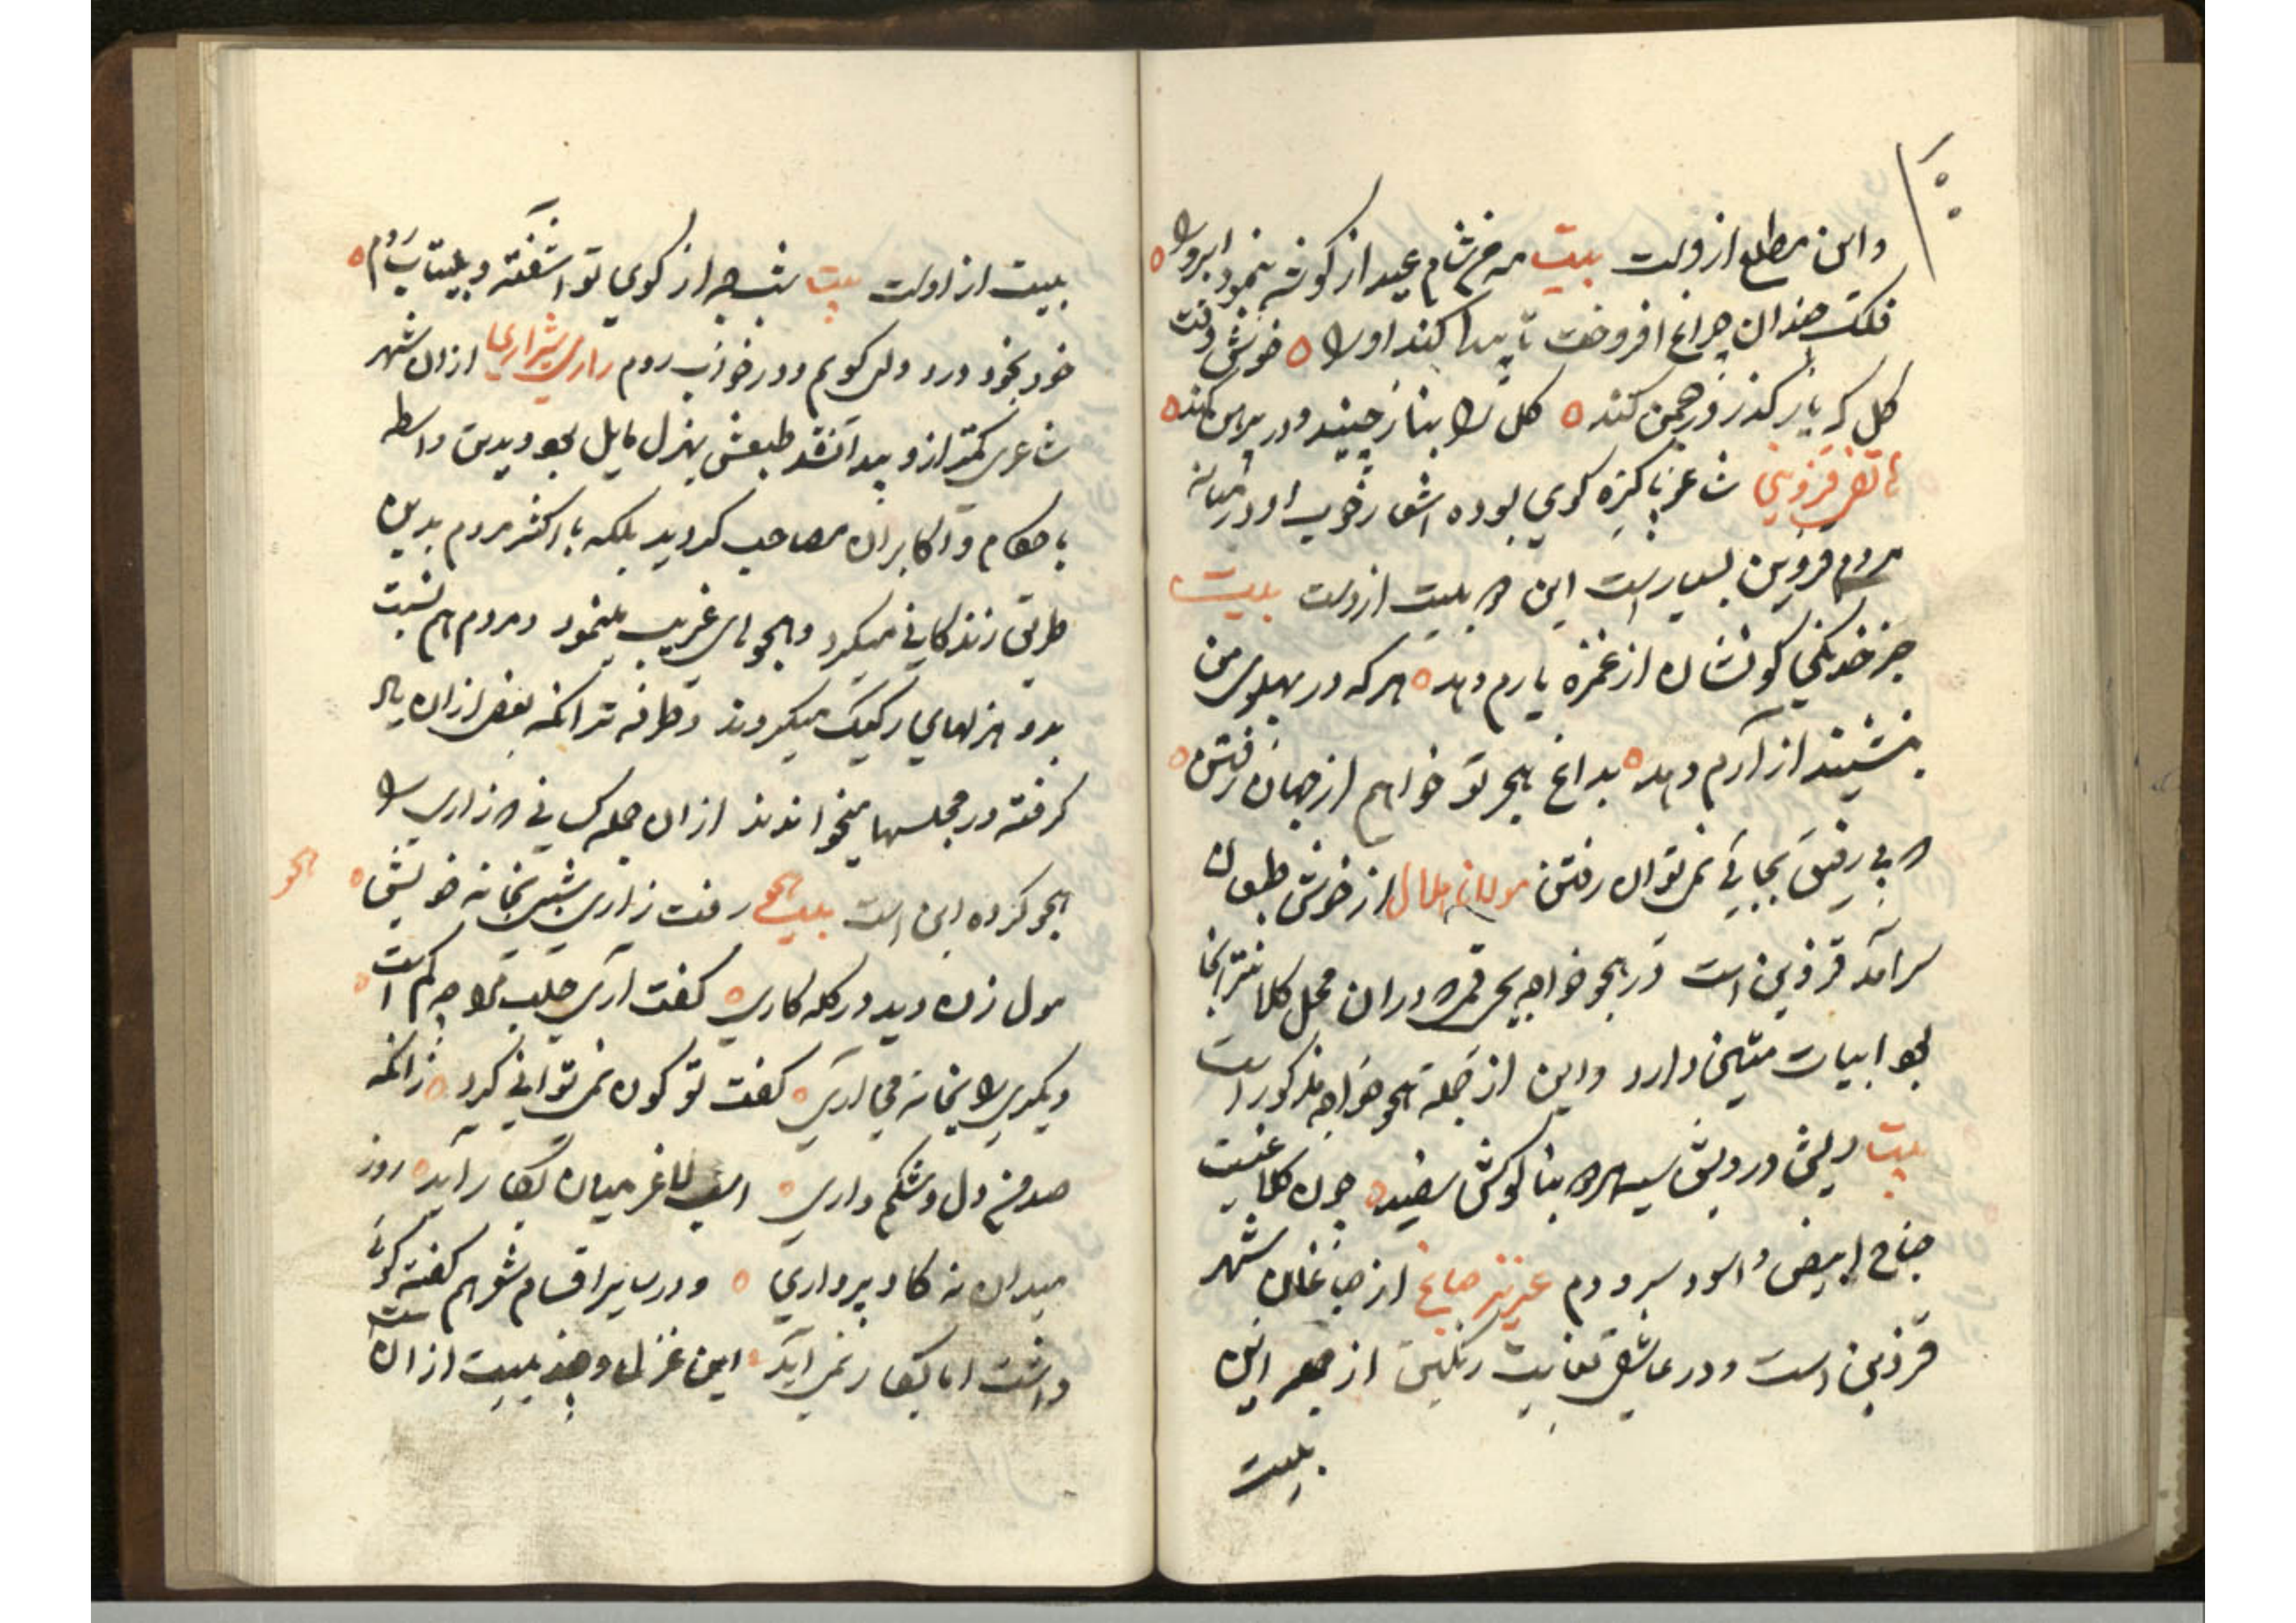 واین مطلع ازوست بیت مه من شام عید از گوشه بنمود ابرو را
فلک چندان چراغ افروخت تا پیدا کند او را خوش وقت
گل که یار گذر در چمن کند گل را بناز چیند و در پیرهن کند
قزوینی شاعر پاکیزه گوی بوده اشعار خوب او در میانه
مردم قزوین بسیار است این دو بیت ازوست بیت
جز خدنگی کو نشان از غمزه یارم دهد هر که در پهلوی من
بنشیند از آرم دهد بداغ هجر تو خواهم از جهان رفتن
که بی رفیق بجائی نمی توان رفتن مولانا از خوش طبعان
سرآمد قزوین است در هجو خواجه که در آن محل کلانتر آنجا
بود ابیات متین دارد واین از جمله هجو خواجه مذکور است
بیت ریش درویش سیه هر دو بناگوش سفید چون کلاغیست
جناح ابیض و اسود سر و دم عزیز صباغ از صباغان شهر
قزوین است و در عاشقی بغایت رنگین از این
بیت
بیت از اوست بیت شب چو از کوی تو آشفته و بیتاب روم
خود بخود درد دل گویم و در خواب روم زاری شیرازی از آن شهر
شاعری کمتر ازو پیدا نشد طبعش بهزل مایل بود و بدین واسطه
با حکام و اکابران مصاحب گردید بلکه با اکثر مردم بدین
طریق زندگانی میکرد و هجوهای غریب مینمود و مردم هم نسبت
بدو هزلهای رکیک میکردند و طرفه تر آنکه بعضی از آن یاد
گرفته در مجلسها میخواندند از آن جمله کسانی که زاری را
هجو کرده این است بیت رفت زاری شبی بخانه خویش
هجو
مول زن دید در کله کاری گفت آری جلب مرا چه کم است
دیگری را بخانه می آری گفت تو کون نمی توانی کرد زانکه
صد من دل و شکم داری اسب لاغر میان بکار آید روز
میدان نه گاو پرواری و در سایر اقسام شعر هم گفته گوئی
داشت اما بکار نمی آید این غزل و چند بیت از آن است